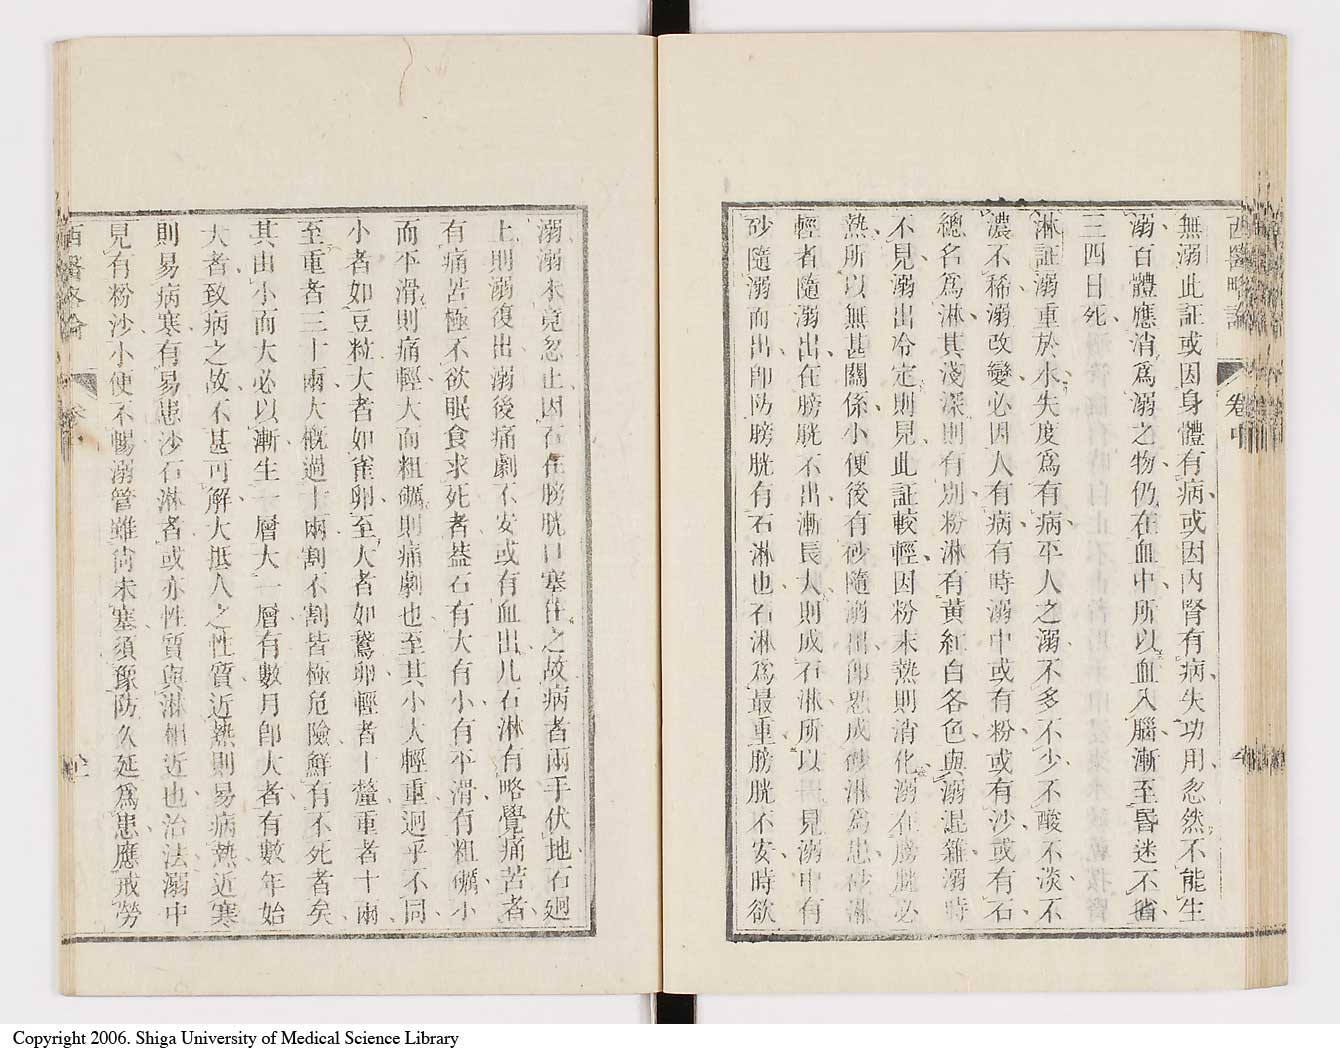 西醫略論 卷中
無溺此証或因身體有病或因內腎有病失功用忽然不能生
溺百體應消爲溺之物仍在血中所以血入腦漸至昏迷不省
三四日死
淋証溺重於水失度爲有病平人之溺不多不少不酸不淡不
濃不稀溺改變必因人有病有時溺中或有粉或有沙或有石
總名爲淋其淺深則有別粉淋有黃紅白各色與溺混雜溺時
不見溺出冷定則見此証較輕因粉末熱則消化溺在膀胱必
熱所以無甚關係小便後有砂隨溺出卽患成砂淋爲患砂淋
輕者隨溺出在膀胱不出漸長大則成石淋所以 見溺中有
砂隨溺而出卽防膀胱有石淋也石淋爲最重膀胱不安時欲
溺溺水竟忽止因石在膀胱口塞住之故病者兩手伏地石迴
上則溺復出溺後痛劇不安或有血出凡石淋有略覺痛苦者
有痛苦極不欲眠食求死者葢石有大有小有平滑有粗礪小
而平滑則痛輕大而粗礪則痛劇也至其小大輕重迥乎不同
小者如豆粒大者如雀卵至大者如鵞卵輕者一釐重者十兩
至重者三十兩大概過十兩割不割皆極危險鮮有不死者矣
其由小而大必以漸生一層大一層有數月卽大者有數年始
大者致病之故不甚可解大抵人之性質近熱則易病熱近寒
則易病寒有易患沙石淋者或亦性質與淋相近也治法溺中
見有粉沙小便不暢溺管雖尙未塞須豫防久延爲患應戒勞
西醫略論